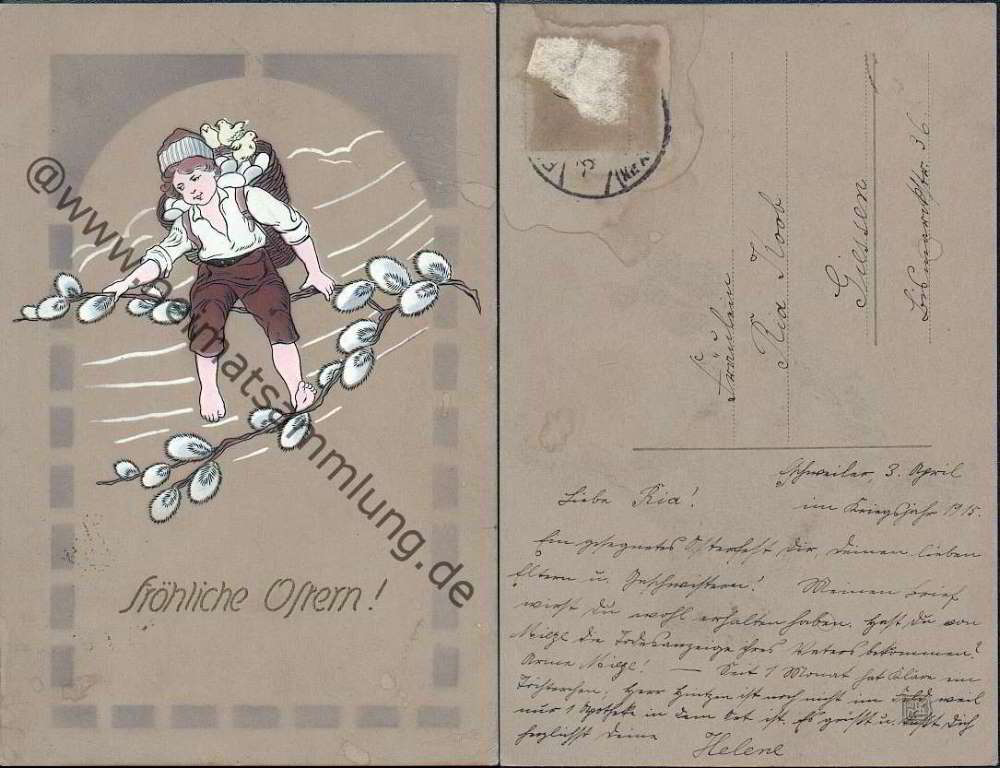 @www.heimatsammlung.de
Fröhliche Ostern!
Fräulein
Ria Koob
Giessen
Eschweiler, 3. April
im Kriegsjahr 1915.
Liebe Ria!
Ein gesegnetes Osterfest Dir, Deinen lieben
Eltern u. Geschwistern! Meinen Brief
wirst Du wohl erhalten haben. Hast Du von
die Todesanzeige ihres Vaters bekommen?
Arme ! — Seit 1 Monat hat Kläre ein
Töchterchen; Herr ist noch nicht im Feld weil
nur 1 Apotheke in dem Ort ist. Es grüßt u. küßt Dich
herzlichst Deine Helene